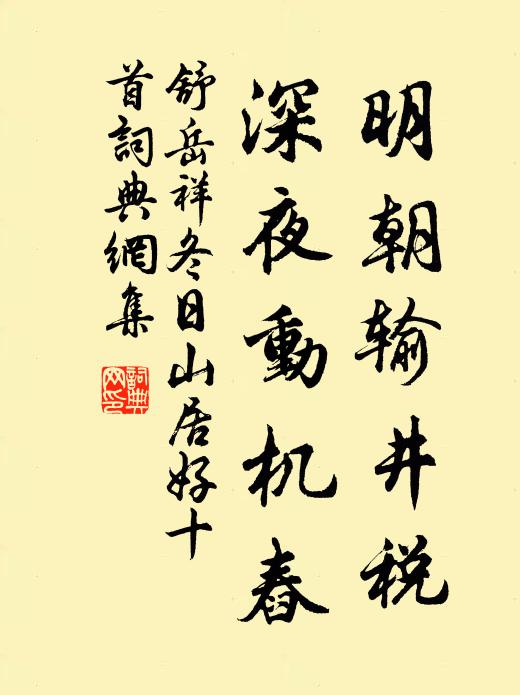 明朝输井税
深夜動机舂
舒岳祥冬日山居好十
首詞典網集
詞典
网印